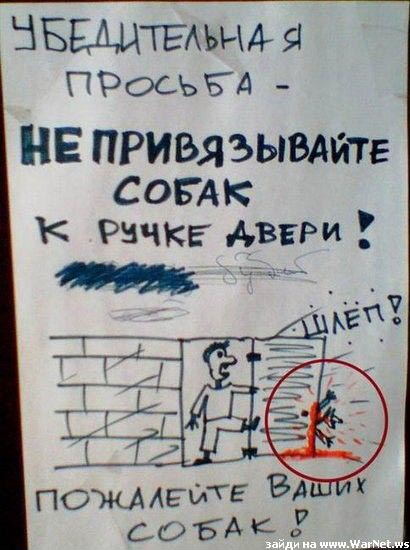 УБЕДИТЕЛЬНАЯ
ПРОСЬБА -
НЕ ПРИВЯЗЫВАЙТЕ
СОБАК
К РУЧКЕ ДВЕРИ!
ШЛЁП!
ПОЖАЛЕЙТЕ ВАШИХ
СОБАК!
зайди на www.WarNet.ws